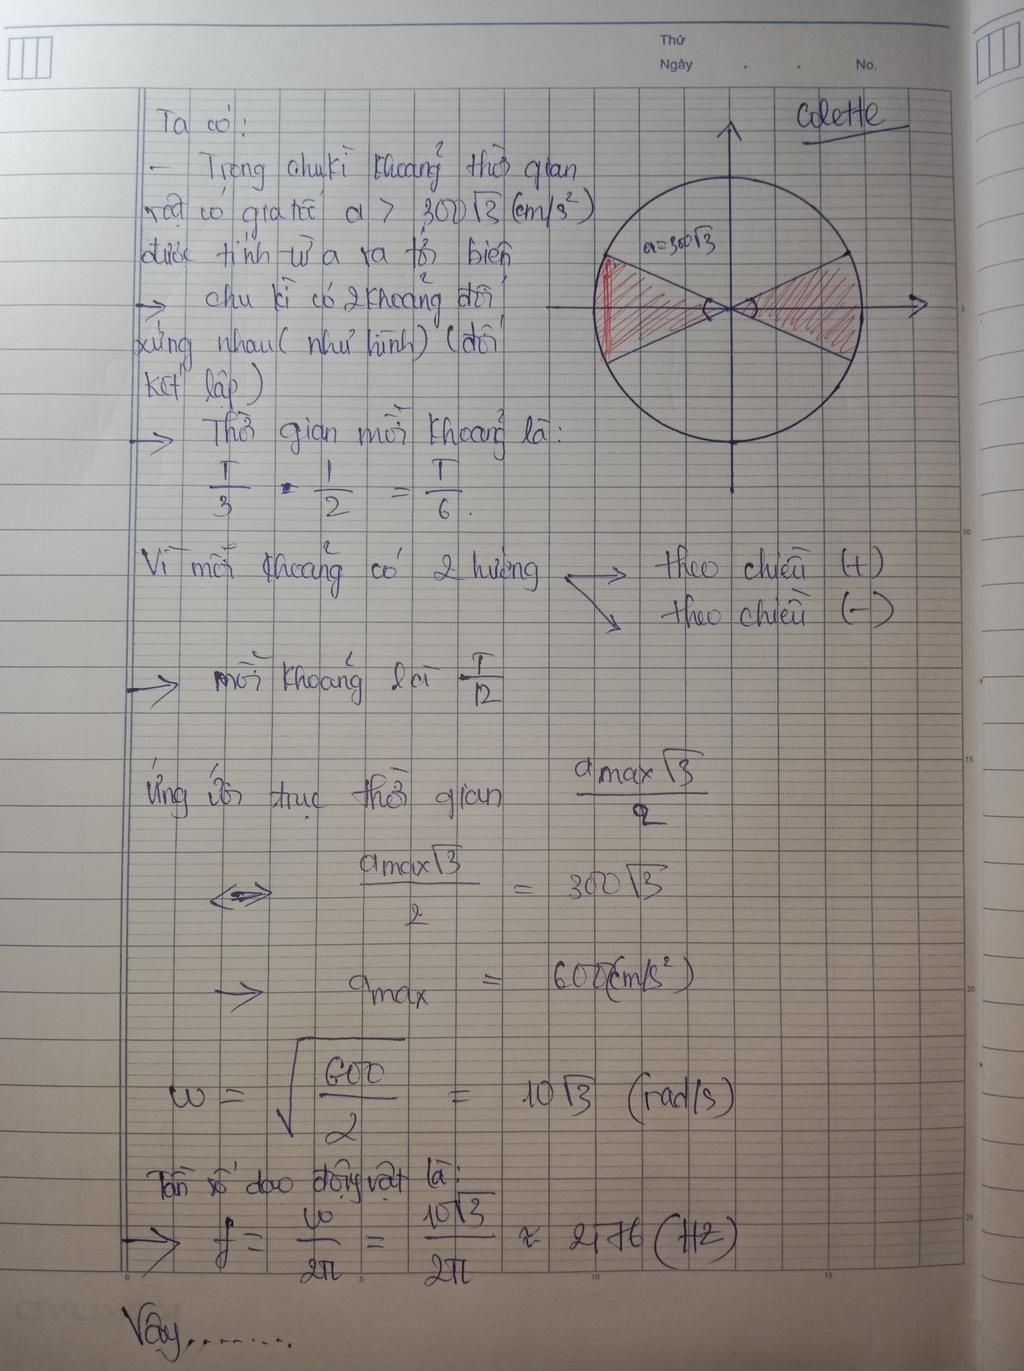 Thứ
Ngày . . No.
Colette
Ta có:
- Trong chu kì khoảng thời gian
vật có gia tốc a > 300√3 (cm/s²)
được tính từ a ra tới biên
→ chu kì có 2 khoảng đối
xứng nhau (như hình) (đối
lập)
a=300√3
→ Thời gian mỗi khoảng là:
T/3 . 1/2 = T/6.
Vì mỗi khoảng có 2 hướng → theo chiều (+)
→ theo chiều (-)
→ mỗi khoảng là T/12
Ứng trục thời gian amax√3/2
⇔ amax√3/2 = 300√3
→ amax = 600 (cm/s²)
ω = √(600/2) = 10√3 (rad/s)
Tần số dao động vật là:
→ f = ω/2π = 10√3/2π ≈ 2,76 (Hz)
Vậy........
0 5 10 15
5
10
15
20
25